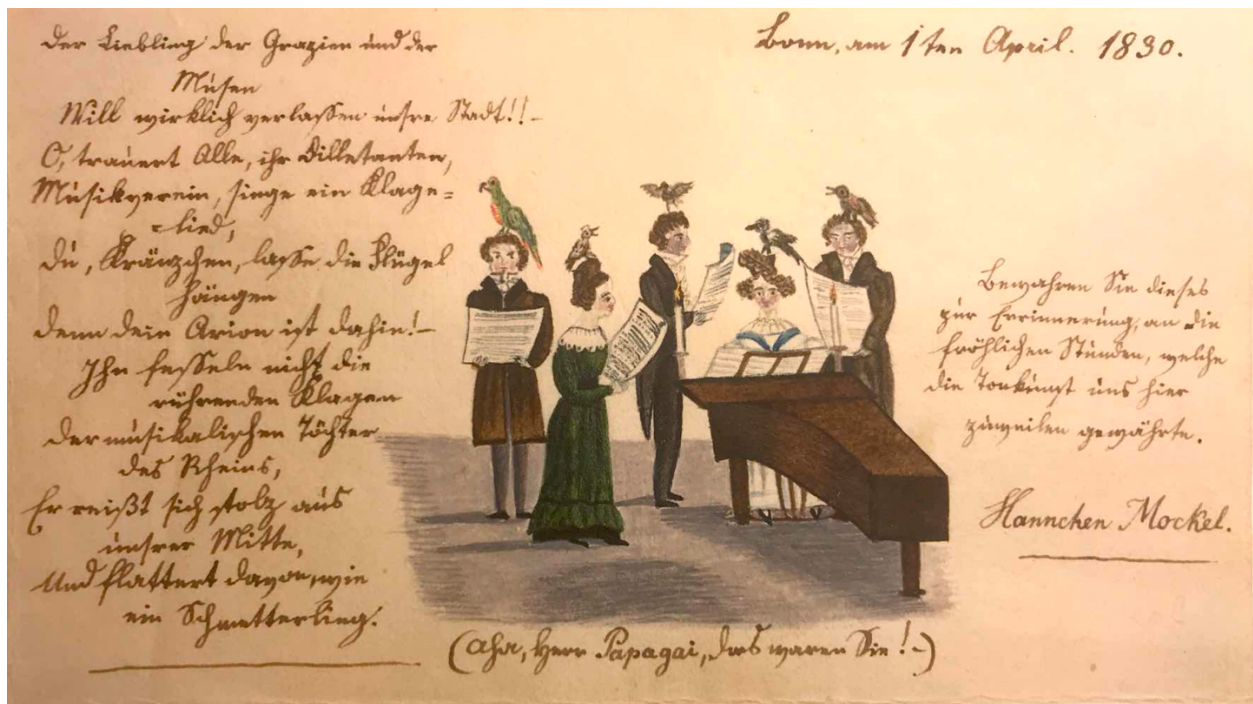 Der Liebling der Grazien und der
Musen
Will wirklich verlassen unsre Stadt!! –
O, trauert Alle, ihr Dilletanten,
Musikverein, singe ein Klage=
=lied,
Du, Kränzchen, lasse die Flügel
hängen
denn dein Arion ist dahin! –
Ihn fesseln nicht die
rührenden Klagen
der musikalischen Töchter
des Rheins,
Er reißt sich stolz aus
unsrer Mitte,
Und flattert davon, wie
ein Schmetterling.
Bonn, am 1ten April. 1830.
Bewahren Sie dieses
zur Errinnerung, an die
fröhlichen Stunden, welche
die Tonkunst uns hier
zuweilen gewährte.
Hannchen Mockel.
(Aha, Herr Papagai, das waren Sie! –)